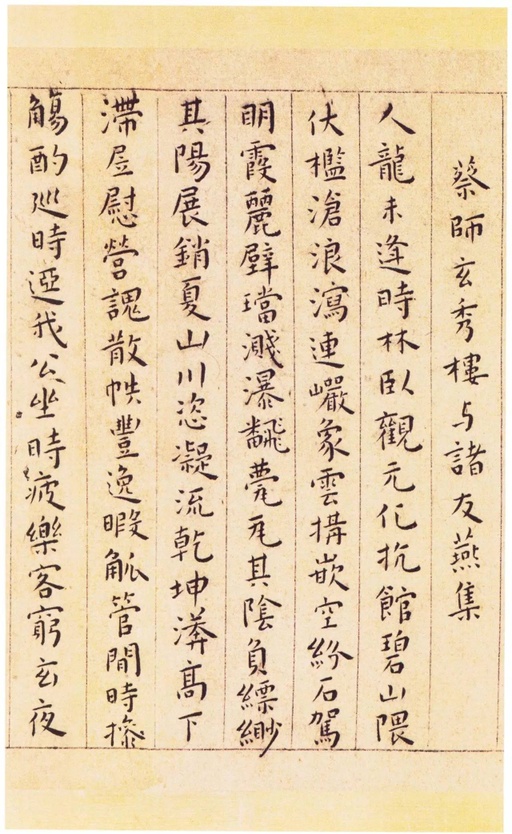 蔡師玄秀樓与諸友燕集
人龍未逢時林臥觀元化抗館碧山隈
伏檻滄浪瀉連巘象雲構嵌空紛石駕
明霞麗壁璫濺瀑飜甍瓦其陰負縹緲
其陽展銷夏山川恣凝流乾坤漭高下
滯㞐慰營䰟散帙豐逸暇觚管間時摻
觴酌廵時迓我公坐時疲樂客窮玄夜